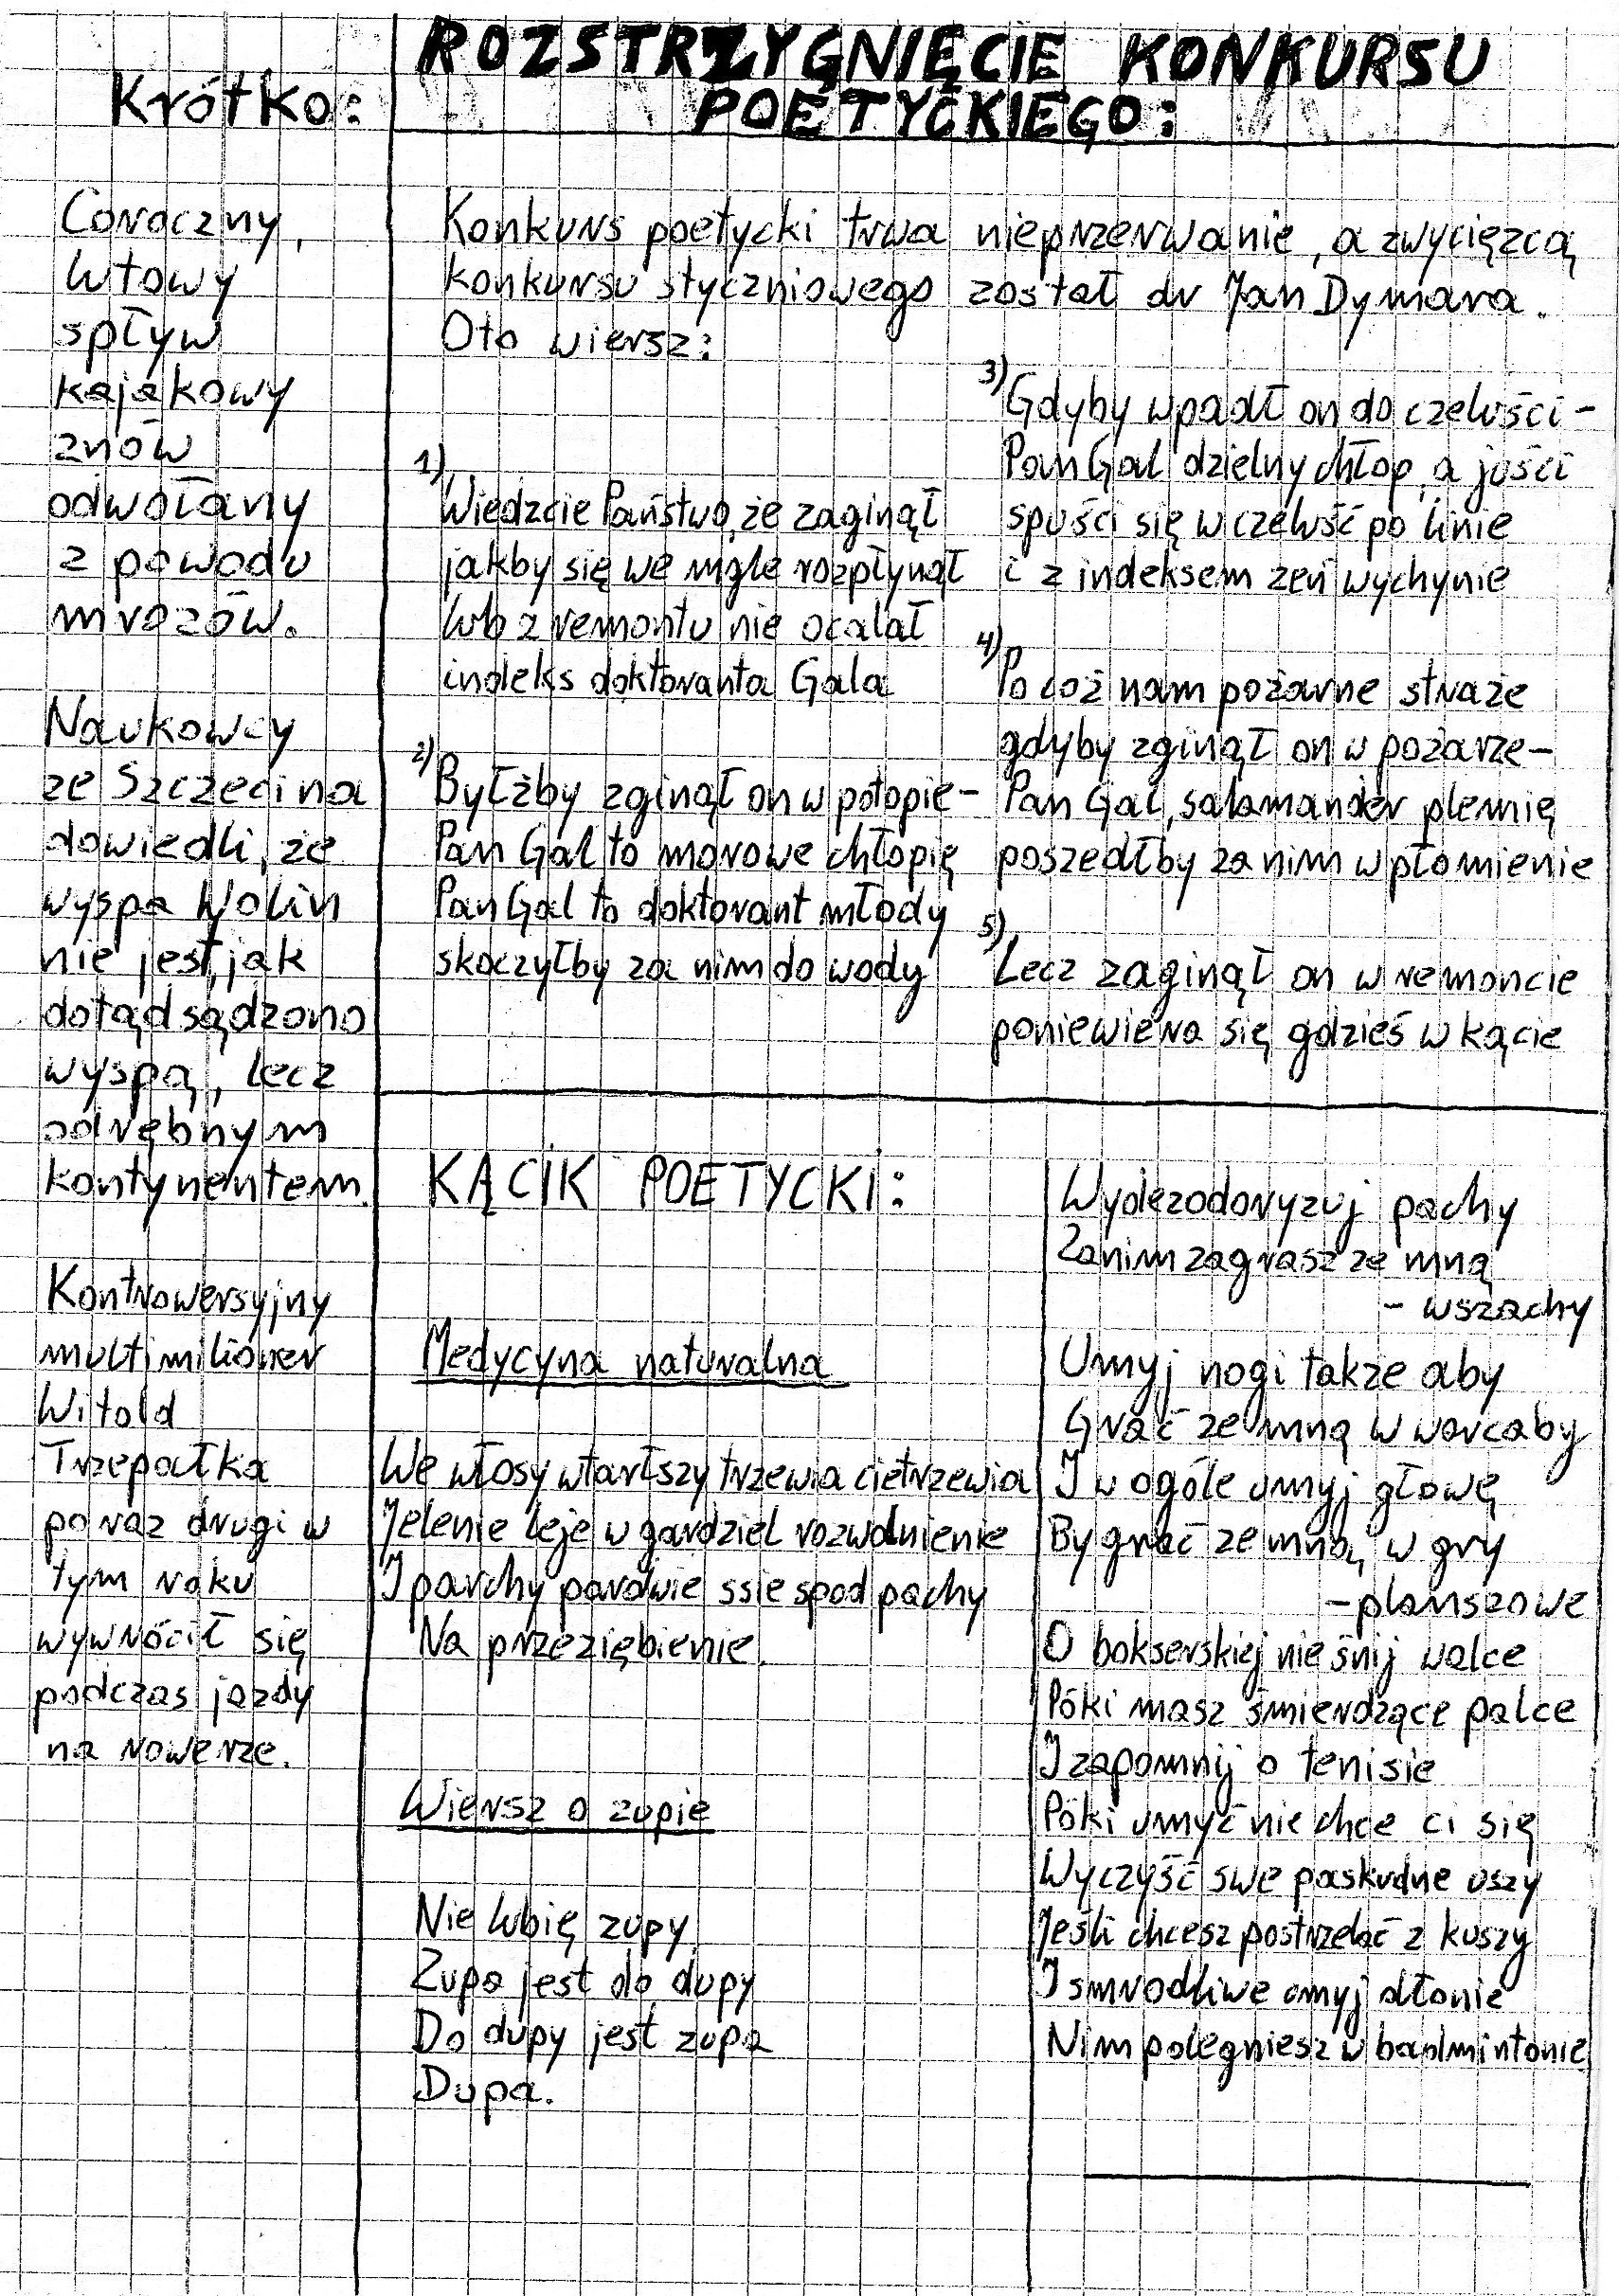 Krótko:
Coroczny,
lutowy
spływ
kajakowy
znów
odwołany
z powodu
mrozów.
Naukowcy
ze Szczecina
dowiedli, że
wyspa Wolin
nie jest, jak
dotąd sądzono
wyspą, lecz
odrębnym
kontynentem.
Kontrowersyjny
multimilioner
Witold
Trzepałka
po raz drugi w
tym roku
wywrócił się
podczas jazdy
na rowerze.
ROZSTRZYGNIĘCIE KONKURSU
POETYCKIEGO:
Konkurs poetycki trwa nieprzerwanie, a zwycięzcą
konkursu styczniowego został dr Jan Dymara.
Oto wiersz:
1)
Wiedzcie Państwo, że zaginął
jakby się we mgle rozpłynął
lub z remontu nie ocalał
indeks doktoranta Gala
2)
Byłżby zginął on w potopie -
Pan Gal to morowe chłopię
Pan Gal to doktorant młody
skoczyłby za nim do wody
3)
Gdyby wpadł on do czeluści -
Pan Gal dzielny chłop, a juści
spuści się w czeluść po linie
i z indeksem zeń wychynie
4)
Po cóż nam pożarne straże
gdyby zginął on w pożarze -
Pan Gal, salamander plemię
poszedłby za nim w płomienie
5)
Lecz zaginął on w remoncie
poniewiera się gdzieś w kącie
KĄCIK POETYCKI:
Medycyna naturalna
We włosy wtarłszy trzewia cietrzewia
Jelenie leje w gardziel rozwolnienie
I parchy parówie ssie spod pachy
Na przeziębienie.
Wiersz o zupie
Nie lubię zupy
Zupa jest do dupy
Do dupy jest zupa
Dupa.
Wydezodoryzuj pachy
Zanim zagrasz ze mną
- w szachy
Umyj nogi także aby
Grać ze mną w warcaby
I w ogóle umyj głowę
By grać ze mną w gry
- planszowe
O bokserskiej nie śnij walce
Póki masz śmierdzące palce
I zapomnij o tenisie
Póki umyć nie chce ci się
Wyczyść swe paskudne uszy
Jeśli chcesz postrzelać z kuszy
I smrodliwe umyj dłonie
Nim polegniesz w badmintonie